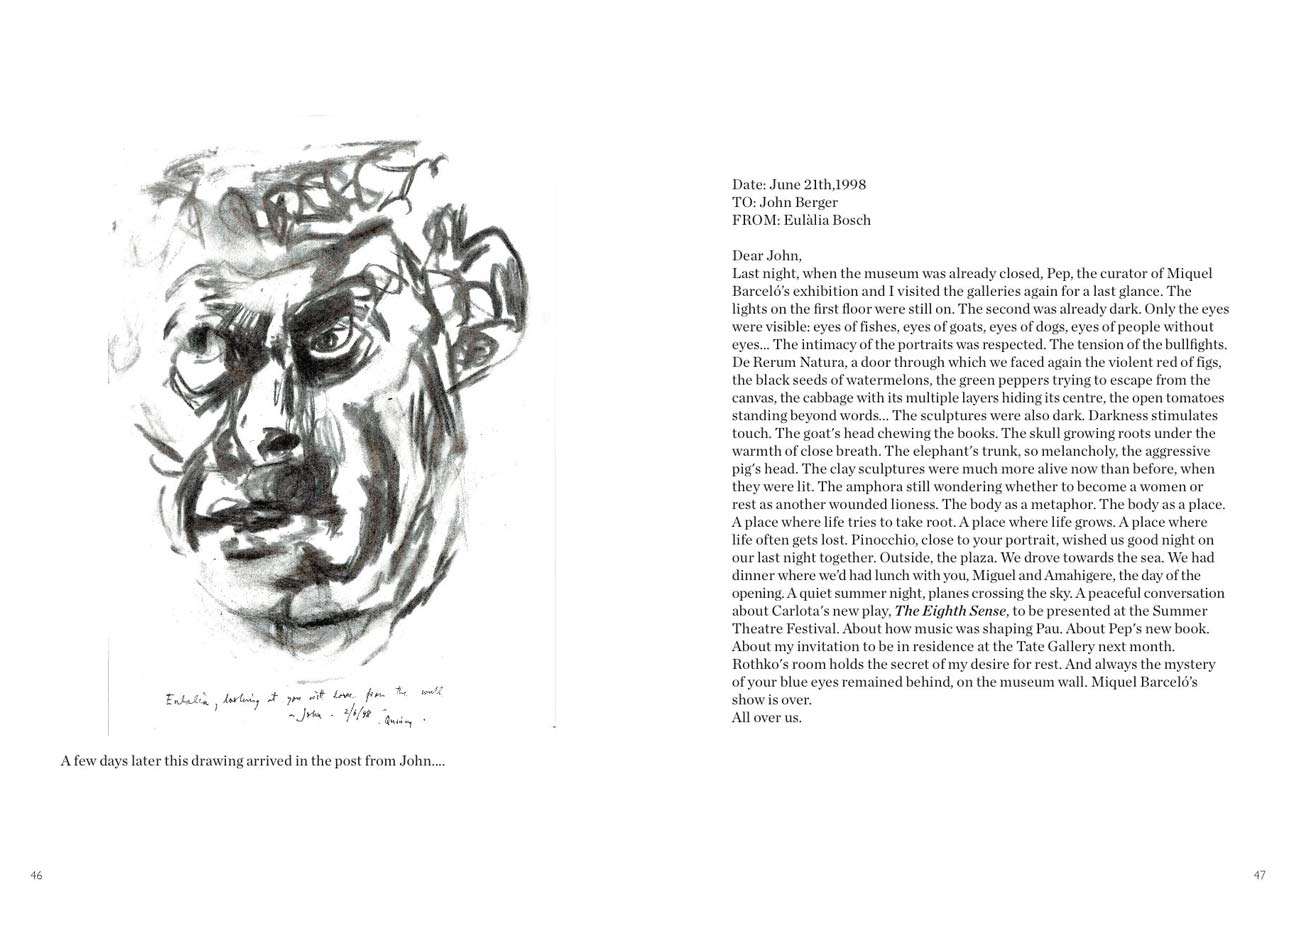 Eulalia, looking at you with love from the wall
~ John . 2/6/98
A few days later this drawing arrived in the post from John....
46
Date: June 21th,1998
TO: John Berger
FROM: Eulàlia Bosch
Dear John,
Last night, when the museum was already closed, Pep, the curator of Miquel
Barceló's exhibition and I visited the galleries again for a last glance. The
lights on the first floor were still on. The second was already dark. Only the eyes
were visible: eyes of fishes, eyes of goats, eyes of dogs, eyes of people without
eyes... The intimacy of the portraits was respected. The tension of the bullfights.
De Rerum Natura, a door through which we faced again the violent red of figs,
the black seeds of watermelons, the green peppers trying to escape from the
canvas, the cabbage with its multiple layers hiding its centre, the open tomatoes
standing beyond words... The sculptures were also dark. Darkness stimulates
touch. The goat's head chewing the books. The skull growing roots under the
warmth of close breath. The elephant's trunk, so melancholy, the aggressive
pig's head. The clay sculptures were much more alive now than before, when
they were lit. The amphora still wondering whether to become a women or
rest as another wounded lioness. The body as a metaphor. The body as a place.
A place where life tries to take root. A place where life grows. A place where
life often gets lost. Pinocchio, close to your portrait, wished us good night on
our last night together. Outside, the plaza. We drove towards the sea. We had
dinner where we'd had lunch with you, Miguel and Amahigere, the day of the
opening. A quiet summer night, planes crossing the sky. A peaceful conversation
about Carlota's new play, The Eighth Sense, to be presented at the Summer
Theatre Festival. About how music was shaping Pau. About Pep's new book.
About my invitation to be in residence at the Tate Gallery next month.
Rothko's room holds the secret of my desire for rest. And always the mystery
of your blue eyes remained behind, on the museum wall. Miquel Barceló's
show is over.
All over us.
47